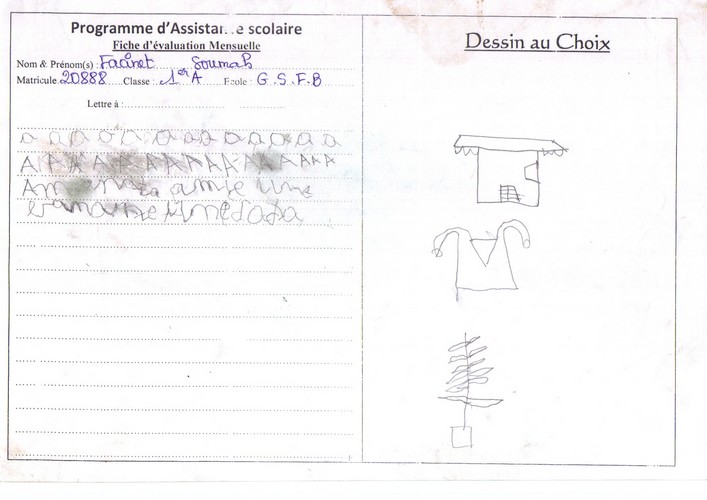 Programme d'Assistance scolaire
Fiche d'évaluation Mensuelle
Nom & Prénom(s) : Facinet Soumah
Matricule 20888 Classe : 1er A Ecole : G.S.F.B
Lettre à :
a a a a a a a a a a a a a
A A A A A A A A A A A A A A
amie une
Dessin au Choix